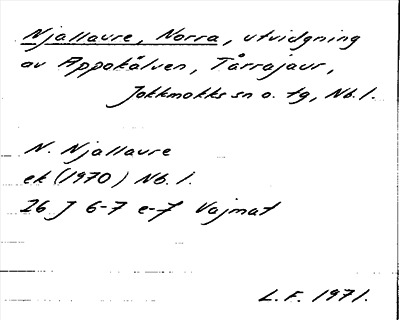 Njallaure, Norra, utvidgning
av Appokålven, Tårrajaur,
Jokkmokks sn o. tg, Nb. l.
N. Njallaure
ek (1970) Nb. l.
26 J 6-7 e-f Vajmat
L.F. 1971.